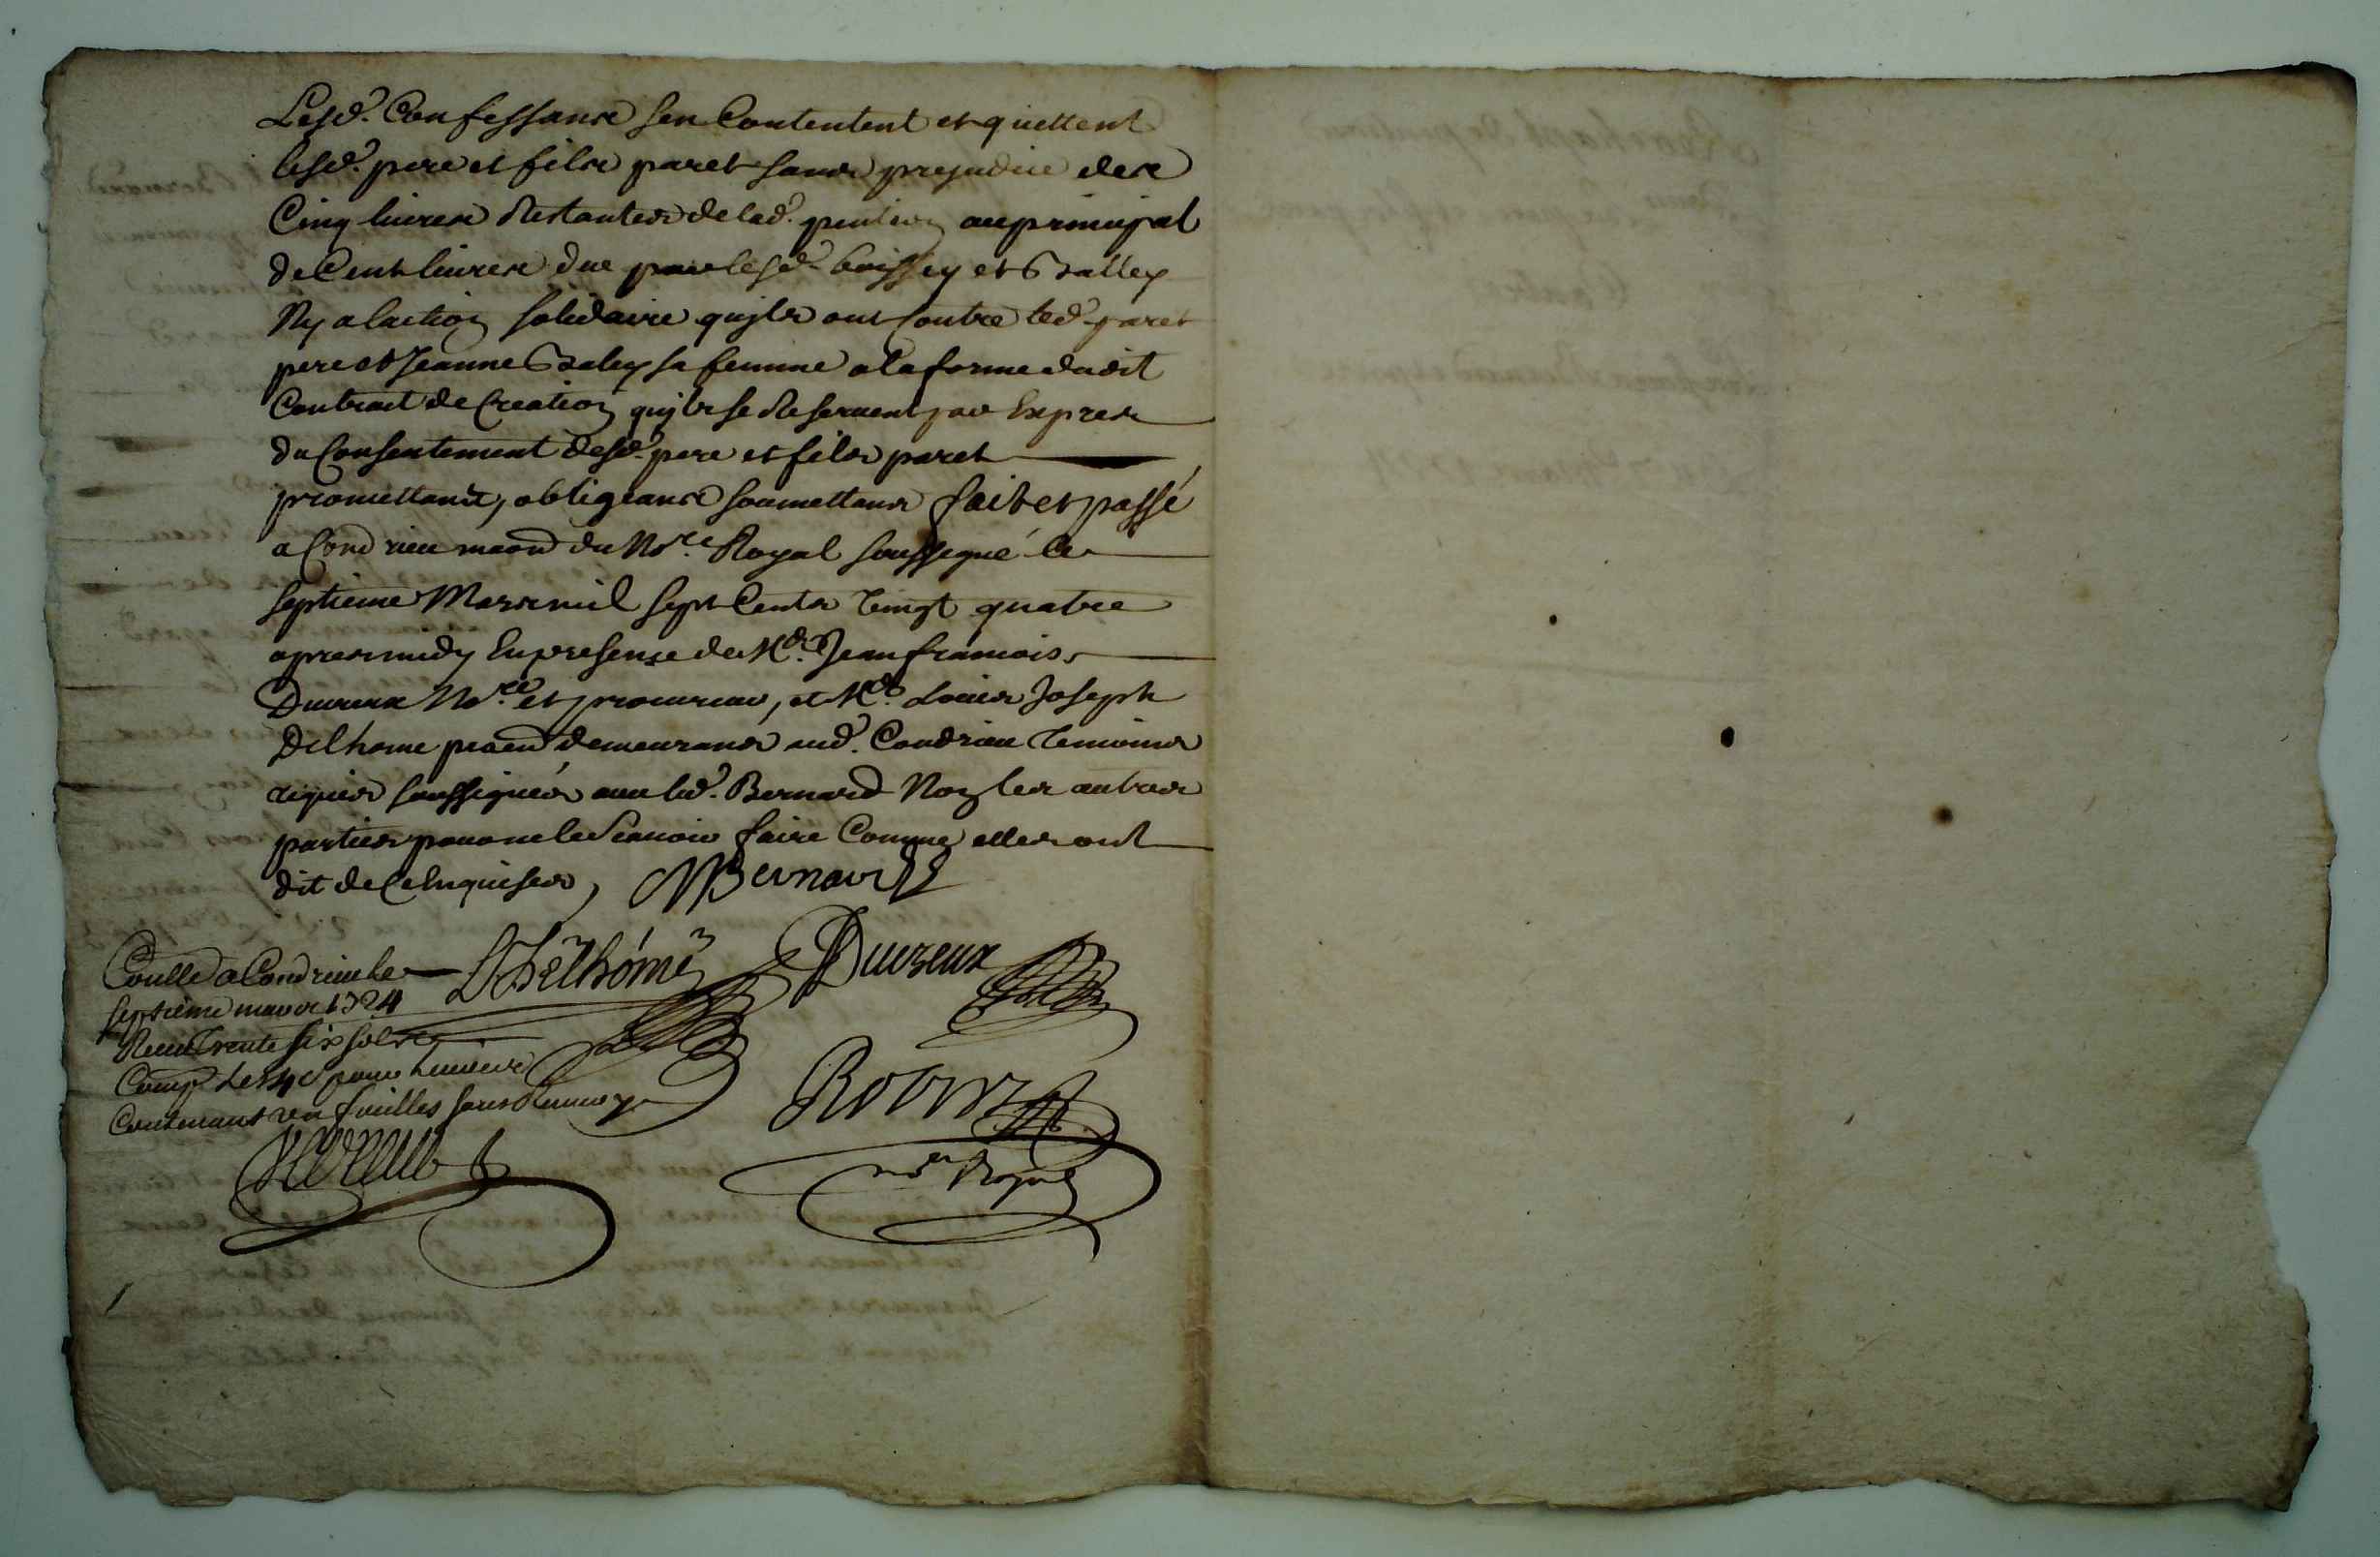 Lesd. Confessans sen Contentent et quittent
lesd. pere et fils paret sans prejudice des
Cinq livres Restantes de lad. pention au principal
de Cent livres due par lesd. boissey et Balley
Ny a laction solidaire quils ont contre led. paret
pere et Jeanne Baley sa femme a la forme dudit
Contract de Creation quils se Reservent par Expres
du Consentement desd. pere et fils paret
promettans, obligeans soumettans fait et passé
a Condrieu maon du Nore. Royal soussigné le
septieme Mars mil sept Cents vingt quatre
apres midy En presense de Me. Jean francois
Duvreux Nore. et procureur, et Me. Louis Joseph
Delhome praen demeurans aud. Condrieu temoins
requis soussignés avec led. Bernard Non les autres
parties pour ne le scavoir faire Comme elles ont
dit de Ce Enquises, MBernard
Conllé a Condrieu le
septieme mars 1724
Receu Trente six sols
Delhóme
Duvreux
Comp. les 4 s pour livre
Contenant en feuilles sans
Robin
nore Royal